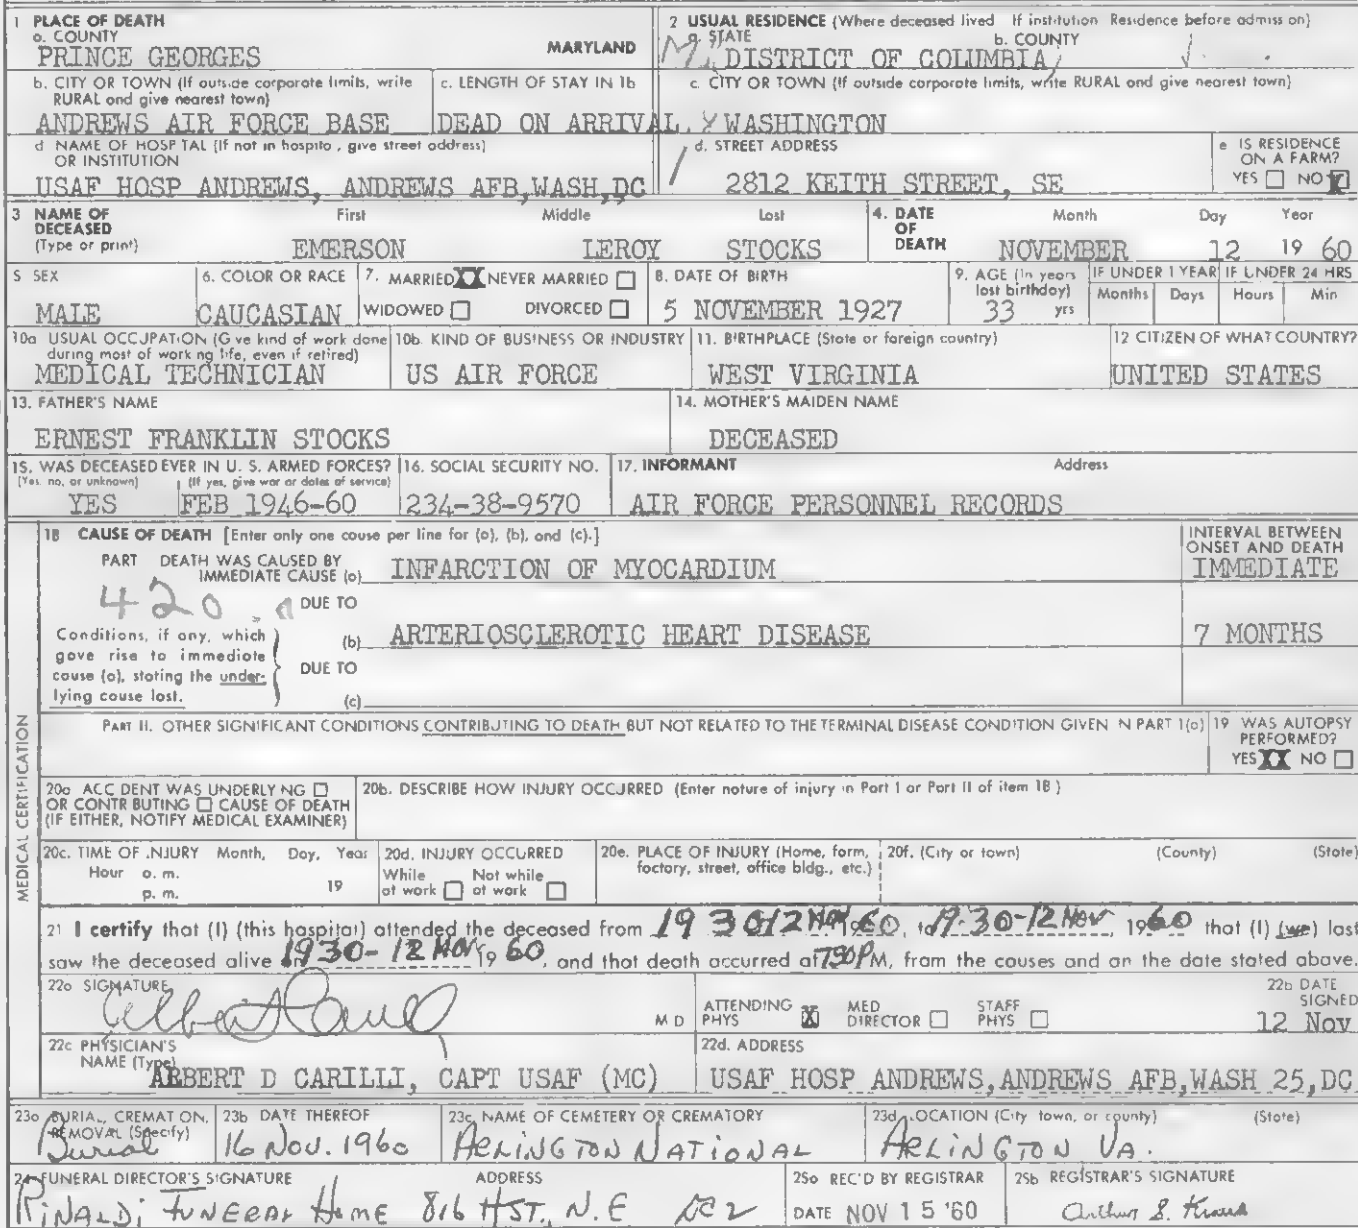 1 PLACE OF DEATH
a. COUNTY
PRINCE GEORGES MARYLAND
2 USUAL RESIDENCE (Where deceased lived If institution Residence before admiss on)
a. STATE b. COUNTY
DISTRICT OF COLUMBIA
b. CITY OR TOWN (If outside corporate limits, write RURAL and give nearest town)
ANDREWS AIR FORCE BASE
c. LENGTH OF STAY IN 1b
DEAD ON ARRIVAL.
c. CITY OR TOWN (If outside corporate limits, write RURAL and give nearest town)
WASHINGTON
d NAME OF HOSP TAL (If not in hospita , give street address)
OR INSTITUTION
USAF HOSP ANDREWS, ANDREWS AFB,WASH,DC
d. STREET ADDRESS
2812 KEITH STREET, SE
e IS RESIDENCE
ON A FARM?
YES NO X
3 NAME OF
DECEASED
(Type or print)
First Middle Last
EMERSON LEROY STOCKS
4. DATE
OF
DEATH
Month Day Year
NOVEMBER 12 19 60
5 SEX
MALE
6. COLOR OR RACE
CAUCASIAN
7. MARRIED XX NEVER MARRIED
WIDOWED DIVORCED
8. DATE OF BIRTH
5 NOVEMBER 1927
9. AGE (In years
last birthday)
33 yrs
IF UNDER 1 YEAR IF UNDER 24 HRS
Months Days Hours Min
10a USUAL OCCUPATION (G ve kind of work done
during most of work ng life, even if retired)
MEDICAL TECHNICIAN
10b. KIND OF BUSINESS OR INDUSTRY
US AIR FORCE
11. BIRTHPLACE (State or foreign country)
WEST VIRGINIA
12 CITIZEN OF WHAT COUNTRY?
UNITED STATES
13. FATHER'S NAME
ERNEST FRANKLIN STOCKS
14. MOTHER'S MAIDEN NAME
DECEASED
15. WAS DECEASED EVER IN U. S. ARMED FORCES?
(Yes, no, or unknown) (If yes, give war or dates of service)
YES FEB 1946-60
16. SOCIAL SECURITY NO.
234-38-9570
17. INFORMANT Address
AIR FORCE PERSONNEL RECORDS
MEDICAL CERTIFICATION
18 CAUSE OF DEATH [Enter only one cause per line for (a), (b), and (c).]
INTERVAL BETWEEN
ONSET AND DEATH
PART DEATH WAS CAUSED BY
IMMEDIATE CAUSE (a) INFARCTION OF MYOCARDIUM IMMEDIATE
420.
DUE TO
Conditions, if any, which
gave rise to immediate
cause (a), stating the under-
lying cause last.
(b) ARTERIOSCLEROTIC HEART DISEASE 7 MONTHS
DUE TO
(c)
PART II. OTHER SIGNIFICANT CONDITIONS CONTRIBUTING TO DEATH BUT NOT RELATED TO THE TERMINAL DISEASE CONDITION GIVEN N PART 1(a)
19 WAS AUTOPSY
PERFORMED?
YES XX NO
20a ACC DENT WAS UNDERLY NG
OR CONTR BUTING CAUSE OF DEATH
(IF EITHER, NOTIFY MEDICAL EXAMINER)
20b. DESCRIBE HOW INJURY OCCURRED (Enter nature of injury in Part I or Part II of item 18 )
20c. TIME OF INJURY Month, Day, Year
Hour a. m.
p. m. 19
20d. INJURY OCCURRED
While at work Not while at work
20e. PLACE OF INJURY (Home, farm,
factory, street, office bldg., etc.)
20f. (City or town) (County) (State)
21 I certify that (I) (this hospital) attended the deceased from 1930 12 Nov 1960, to 19:30-12 Nov, 1960 that (I) (we) last
saw the deceased alive 1930-12 Nov 19 60, and that death occurred at 730P M, from the causes and on the date stated above.
22a SIGNATURE
M D
ATTENDING
PHYS X
MED
DIRECTOR
STAFF
PHYS
22b DATE
SIGNED
12 Nov
22c PHYSICIAN'S
NAME (Type)
ALBERT D CARILLI, CAPT USAF (MC)
22d. ADDRESS
USAF HOSP ANDREWS,ANDREWS AFB,WASH 25,DC
23a BURIAL, CREMAT ON,
REMOVAL (Specify)
Burial
23b DATE THEREOF
16 Nov. 1960
23c. NAME OF CEMETERY OR CREMATORY
ARLINGTON NATIONAL
23d LOCATION (City town, or county) (State)
ARLINGTON VA.
24 FUNERAL DIRECTOR'S SIGNATURE ADDRESS
RINALDI FUNERAL HOME 816 H ST., N.E DC 2
25a REC'D BY REGISTRAR
DATE NOV 15 '60
25b REGISTRAR'S SIGNATURE
Arthur S. Kraus